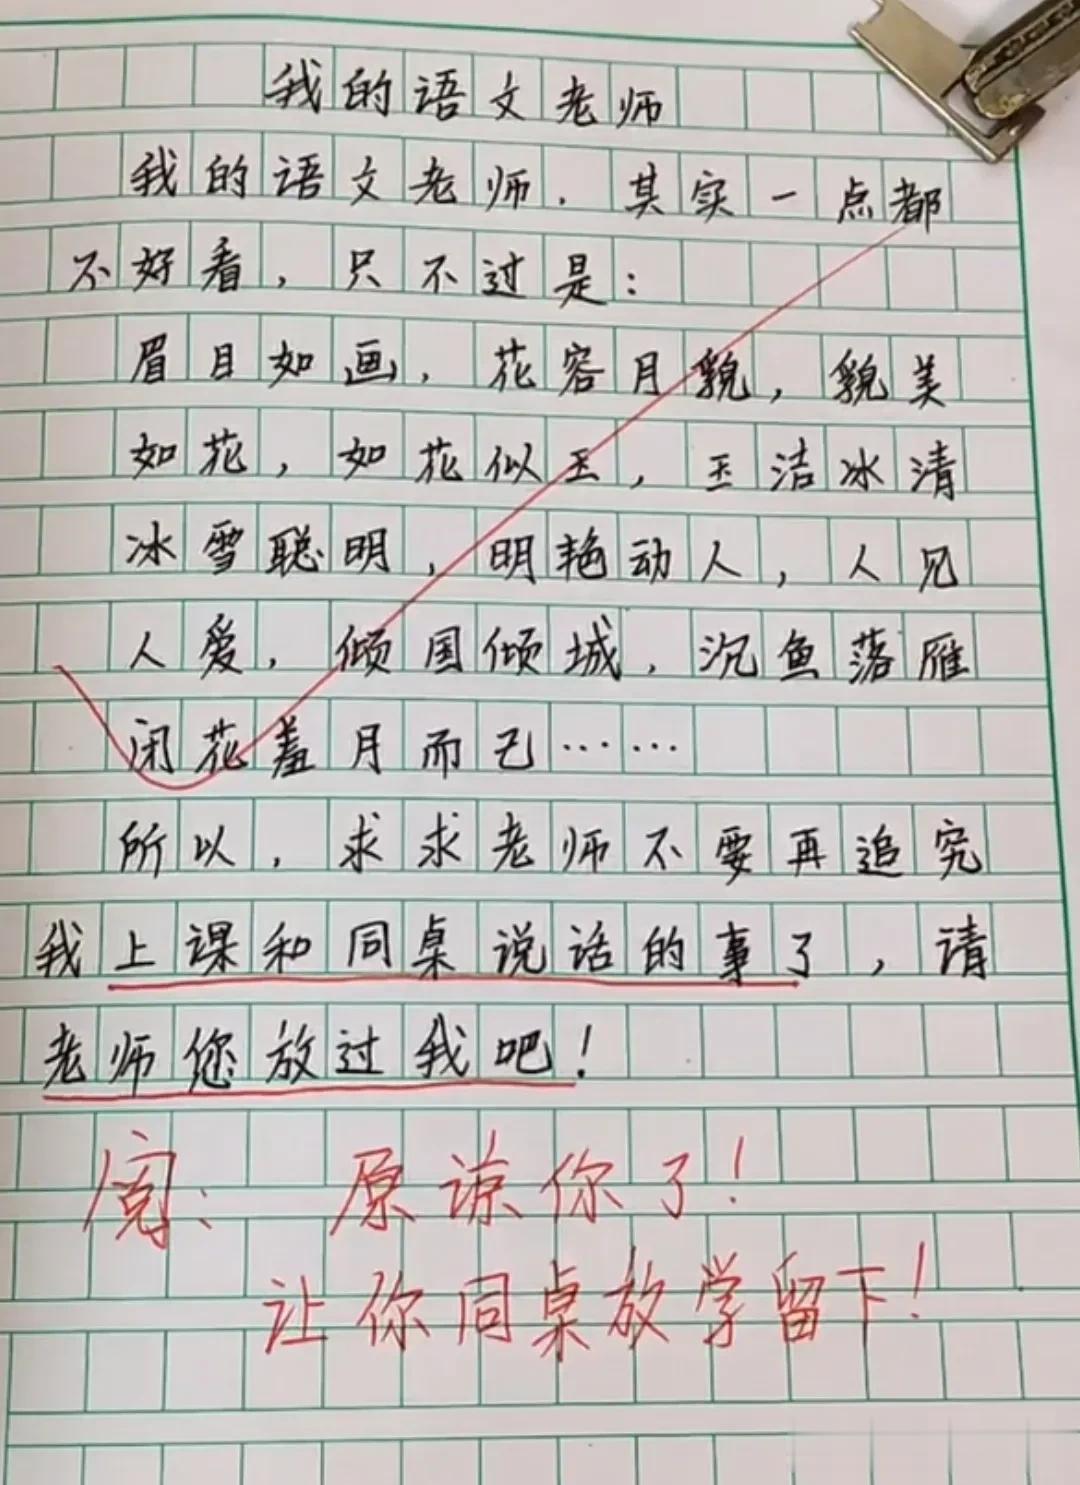 我的语文老师
我的语文老师，其实一点都
不好看，只不过是：
眉目如画，花容月貌，貌美
如花，如花似玉，玉洁冰清
冰雪聪明，明艳动人，人见
人爱，倾国倾城，沉鱼落雁
闭花羞月而已……
所以，求求老师不要再追究
我上课和同桌说话的事了，请
老师您放过我吧！
阅：原谅你了！
让你同桌放学留下！